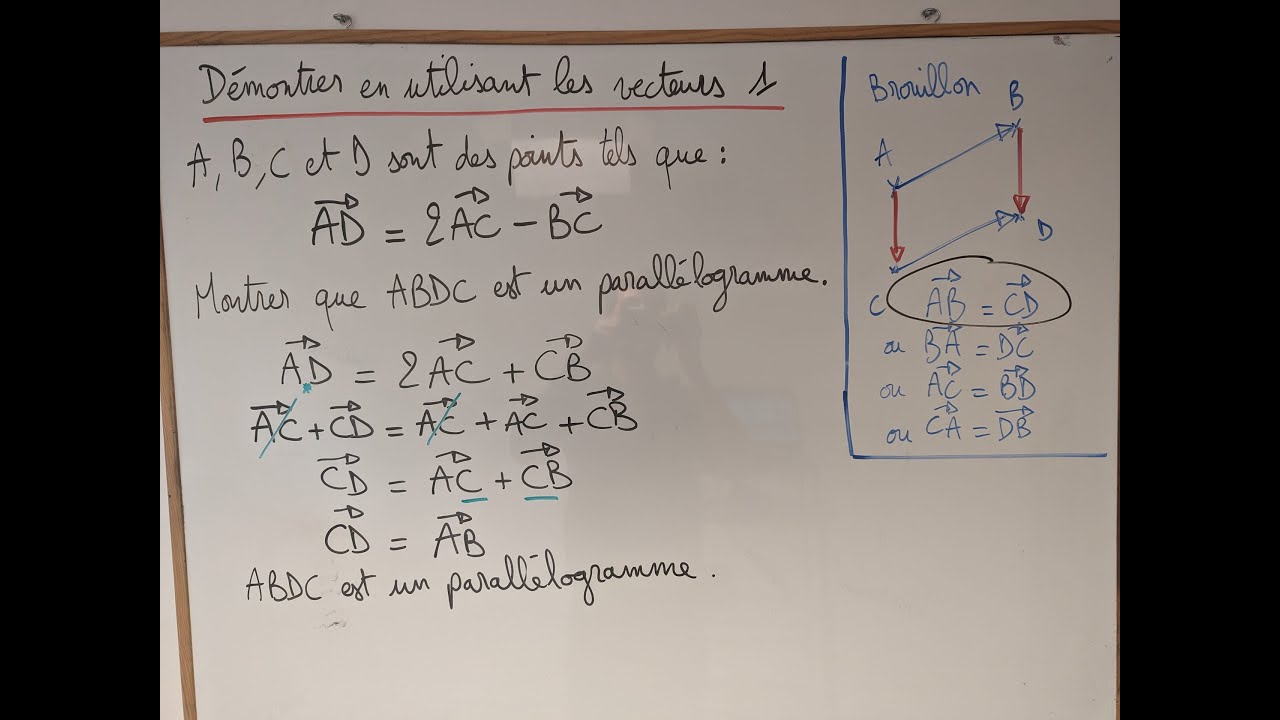 Démontrer en utilisant les vecteurs 1
A, B, C et D sont des points tels que :
$\overrightarrow{AD} = 2\overrightarrow{AC} - \overrightarrow{BC}$
Montrer que ABDC est un parallélogramme.
$\overrightarrow{AD} = 2\overrightarrow{AC} + \overrightarrow{CB}$
$\overrightarrow{AC} + \overrightarrow{CD} = \overrightarrow{AC} + \overrightarrow{AC} + \overrightarrow{CB}$
$\overrightarrow{CD} = \overrightarrow{AC} + \overrightarrow{CB}$
$\overrightarrow{CD} = \overrightarrow{AB}$
ABDC est un parallélogramme.
Brouillon
B
A
D
C
$\overrightarrow{AB} = \overrightarrow{CD}$
ou $\overrightarrow{BA} = \overrightarrow{DC}$
ou $\overrightarrow{AC} = \overrightarrow{BD}$
ou $\overrightarrow{CA} = \overrightarrow{DB}$